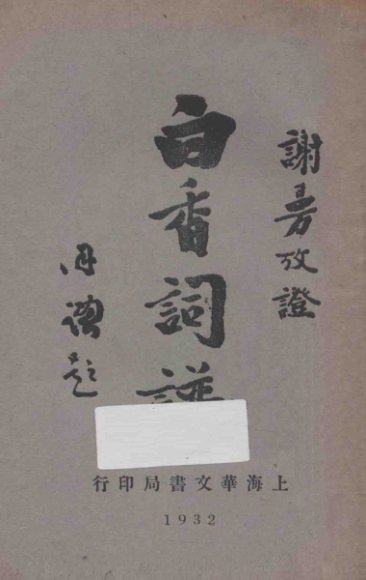 謝
攷證
白香詞譜
題
上海華文書局印行
1932